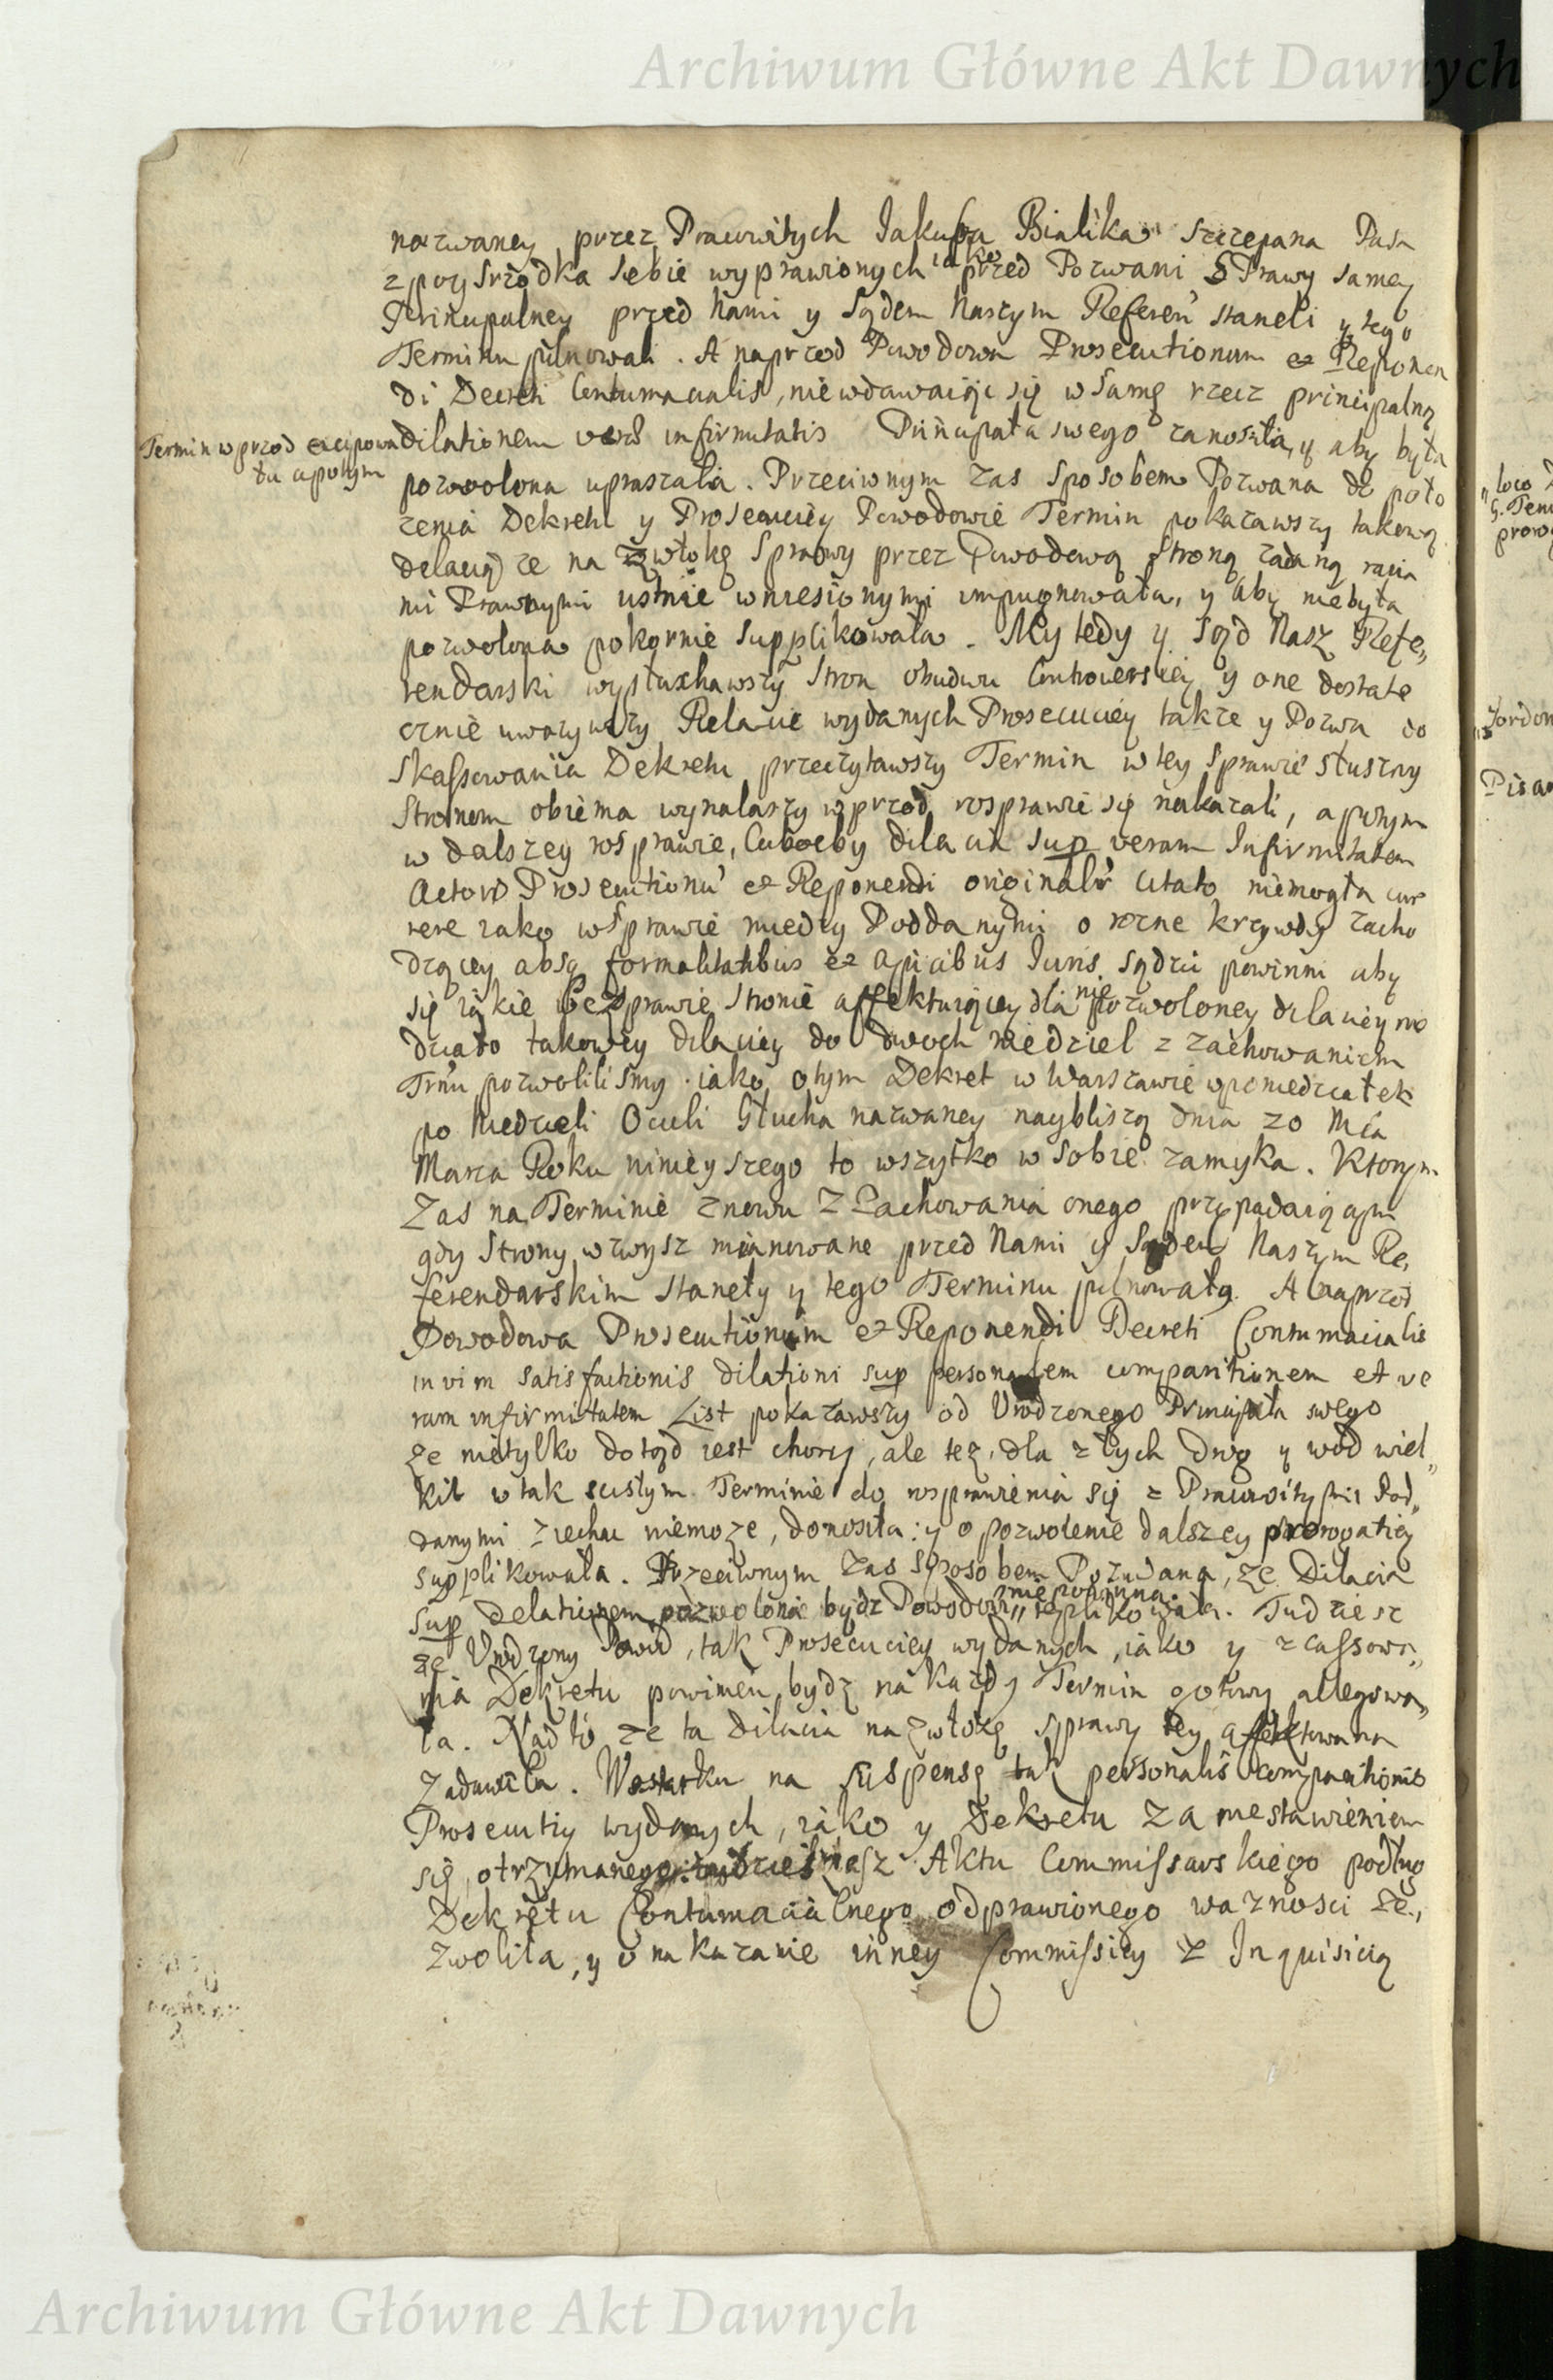 Archiwum Główne Akt Dawnych
nazwaney przez Pracowitych Jakuba Bialika Szczepana Pasa
z posrzodka siebie wyprawionych iako przed Pozwani S Prawy samey
Principalney przed Nami y Sądem Naszym Referen staneli y tego
Terminu pilnowali. A naprzod Powodowa Prosecutionum et Reponen
di Decreti Contumacialis, niewdawaiąc się w samę rzecz principalną
Termin wprzod excipowa
tu apotym
dilationem veræ infirmitatis Principała swego zanosiła, y aby była
pozwolona upraszała. Przeciwnym zas sposobem Pozwana do poło
zenia Dekretu y Prosecuciey Powodowie Termin pokazawszy takową
delacią ze na zwłokę Sprawy przez Powodową stronę zadaną racia
mi Prawnymi ustnie wniesionymi impugnowała, y aby niebyła
pozwolona pokornie supplikowała. My tedy y Sąd Nasz Refe„
rendarski wysłuchawszy stron obudwu Controversiey y one dostate
cznie uwazywszy Relacie wydanych Prosecuciey takze y Pozwu do
Skassowania Dekretu przeczytawszy Termin w tey sprawie słuszny
Stronom obiema wynalaszy wprzod rosprawic się nakazali, a potym
w dalszey rosprawie, luboeby dilacia sup veram Infirmitatem
Actoris Prosecutionu et Reponendi originalr citato niemogła cur
rere iako w sprawie miedzy Poddanymi o rozne krzywdy zacho
dzącey absq formalitatibus et apicibus Iuris sądzić powinni aby
się iakie bezprawie stronie affektuiącey dla nie pozwoloney dilaciey nie
działo takowey dilaciey do dwoch niedziel z zachowaniem
Trmu pozwolilismy iako otym Dekret w Warszawie w poniedziałek
po Niedzieli Oculi Głucha nazwaney naybliszą dnia 20 Mca
Marca Roku ninieyszego to wszytko w sobie zamyka. Ktorym
Zas na Terminie znowu z Zachowania onego przypadaiącym
gdy strony wzwysz mianowane przed Nami y Sądem Naszym Re„
ferendarskim staneły y tego Terminu pilnowały. A naprzod
Powodowa Prosecutionum et Reponendi Decreti Contumacialis
in vim satisfactionis dilationi sup personalem comparitionem et ve
ram infirmitatem List pokazawszy od Urodzonego Principała swego
ze nietylko dotąd iest chory, ale tez dla złych drog y wod wiel„
kich w tak scisłym Terminie do rosprawienia się z Pracowitymi Pod„
danymi ziechac niemoze, donosiła: y o pozwolenie dalszey prorogatiey
supplikowała. Przeciwnym zas sposobem Pozwana, ze Dilacia
sup delationem pozwolona bydz Powodowi niepowinna replikowała. Tudziesz
ze Urodzony Powod, tak Prosecuciey wydanych, iako y zcassowa„
nia Dekretu powinien bydz na kazdy Termin gotowy allegowa„
ła. Nadto ze ta dilacia na zwłokę sprawy tey affektowana
zadawała. W ostatku na suspensę tak personalis comparitionis
Prosecutiy wydanych, iako y Dekretu za niestawieniem
się otrzymanego tudziesz Aktu Commissarskiego podług
Dekretu Contumacialnego odprawionego waznosci ze„
zwoliła, y o nakazanie inney Commissiey z Inquisicią
Archiwum Główne Akt Dawnych